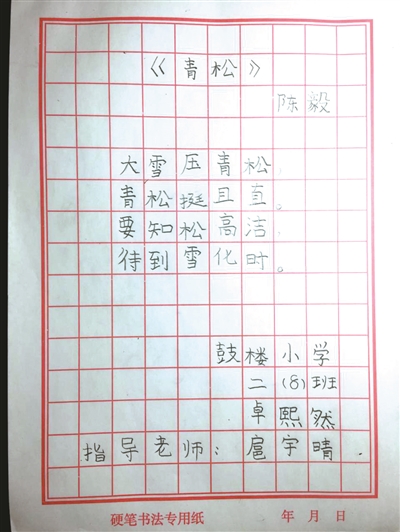 《青松》
陈毅
大雪压青松,
青松挺且直。
要知松高洁,
待到雪化时。
鼓楼小学
二(8)班
卓熙然
指导老师:扈宇晴.
硬笔书法专用纸 年 月 日